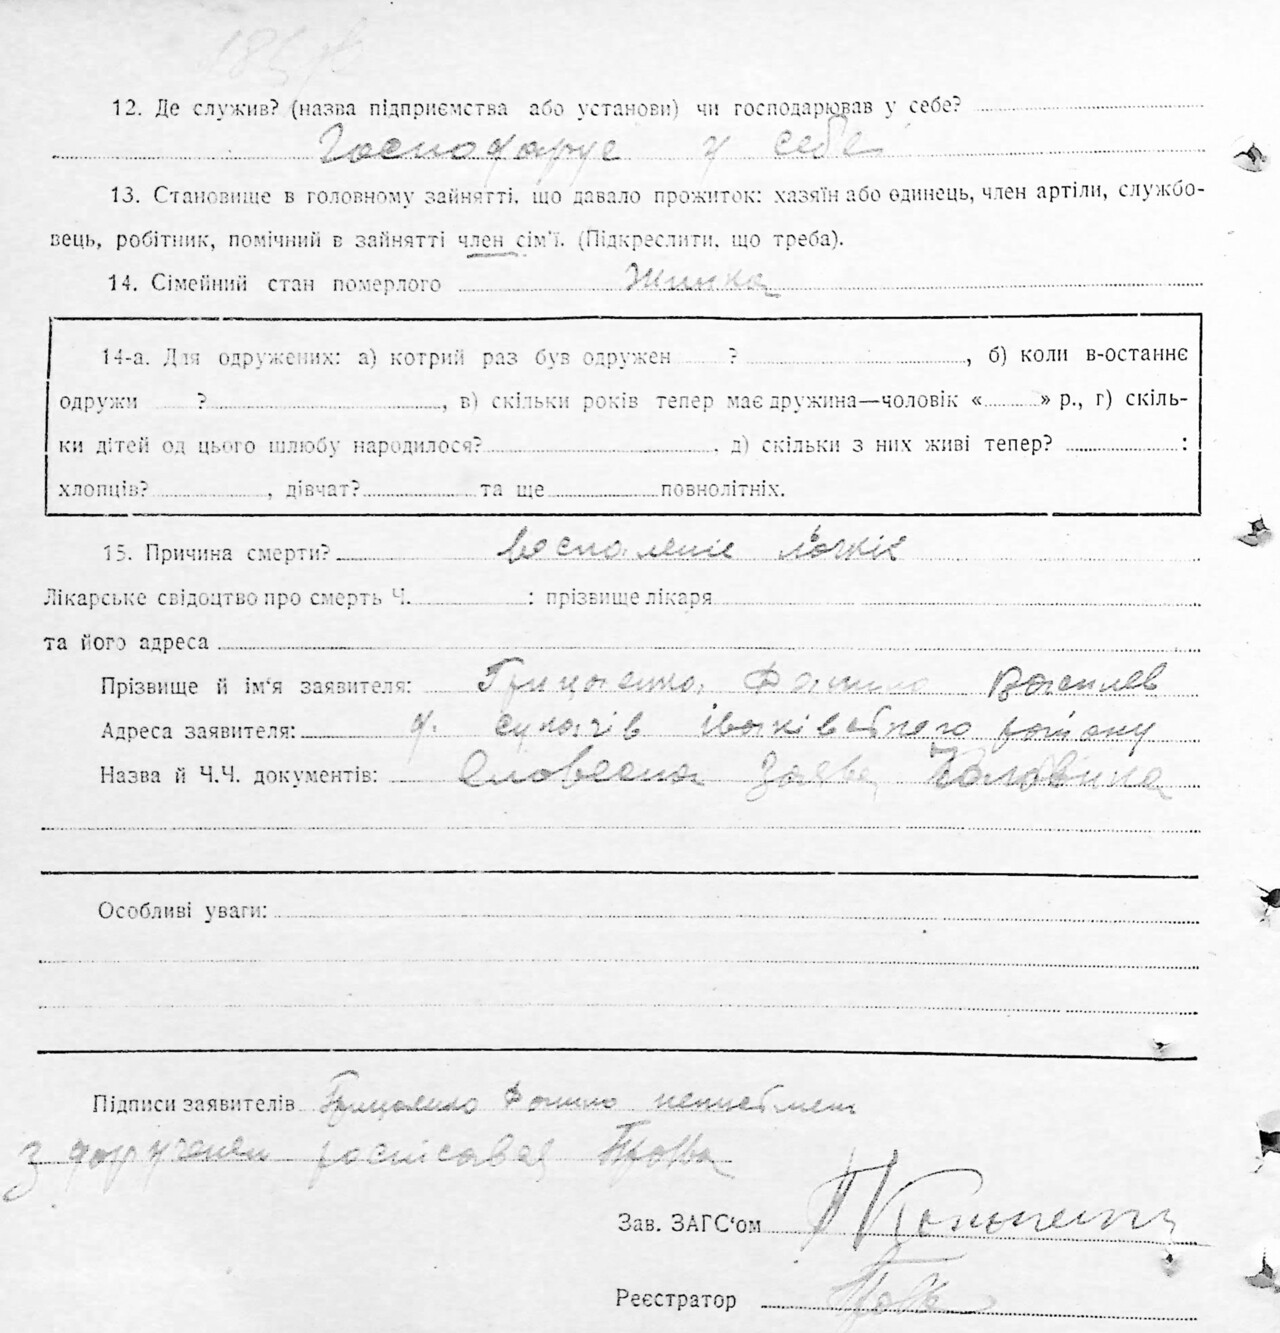 12. Де служив? (назва підприємства або установи) чи господарював у себе?
Господарує у себе
13. Становище в головному зайнятті, що давало прожиток: хазяїн або одинець, член артіли, службо-
вець, робітник, помічний в зайнятті член сім'ї. (Підкреслити, що треба).
14. Сімейний стан померлого Жинка
14-а. Для одружених: а) котрий раз був одружен ? , б) коли в-останнє
одружи ? , в) скільки років тепер має дружина—чоловік « » р., г) скіль-
ки дітей од цього шлюбу народилося? , д) скільки з них живі тепер? :
хлопців? , дівчат? та ще повнолітніх.
15. Причина смерти? Воспаленіє льогкіх
Лікарське свідоцтво про смерть Ч. : прізвище лікаря
та його адреса
Прізвище й ім'я заявителя: Грицаенко Василев
Адреса заявителя: района
Назва й Ч.Ч. документів: Словесна заява
Особливі уваги:
Підписи заявителів неписьмен
з росписався
Зав. ЗАГС'ом
Реєстратор